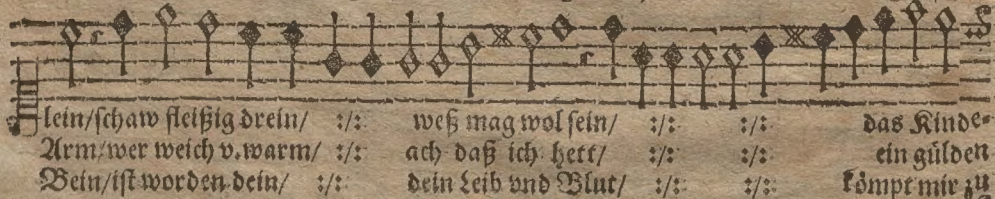 lein/schaw fleißig drein/ :/: weß mag wol sein/ :/: :/: das Kinde⸗
Arm/wer weich v.warm/ :/: ach daß ich hett/ :/: :/: ein gülden
Bein/ist worden dein/ :/: dein Leib vnd Blut/ :/: :/: kömpt mir zu